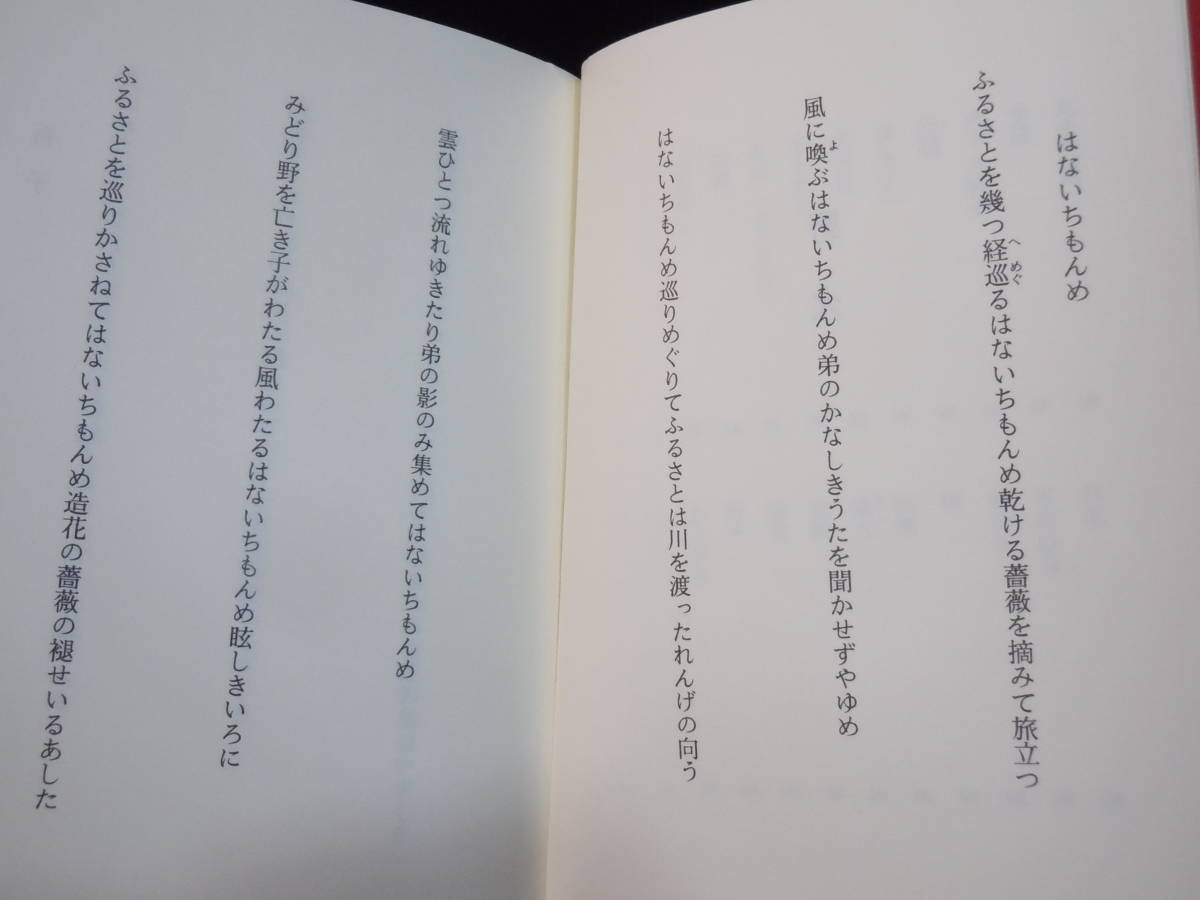 はないちもんめ
ふるさとを幾つ経巡るはないちもんめ乾ける薔薇を摘みて旅立つ
へ めぐ
風に喚ぶはないちもんめ弟のかなしきうたを聞かせずやゆめ
よ
はないちもんめ巡りめぐりてふるさとは川を渡ったれんげの向う
雲ひとつ流れゆきたり弟の影のみ集めてはないちもんめ
みどり野を亡き子がわたる風わたるはないちもんめ眩しきいろに
ふるさとを巡りかさねてはないちもんめ造花の薔薇の褪せいるあした